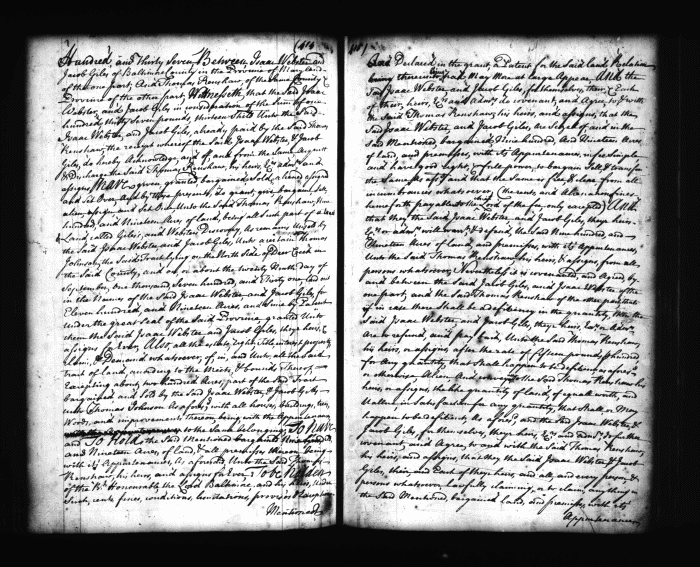 (414
Hundred and Thirty Seven Between Isaac Webster and
Jacob Giles of Baltimore County in the Province of Maryland
of the one part, And Thomas Renshaw, of the same County &
Province of the other part, Witnesseth, that the Said Isaac
Webster, and Jacob Giles, in consideration of the Sum of one
hundred thirty Seven pounds, thirteen Shill Unto the Said
Isaac Webster, and Jacob Giles, already paid, by the Said Thomas
Renshaw, the receipt whereof the Said Isaac Webster, & Jacob
Giles, do hereby Acknowledge, and thereof and from the Same Acquitt
& Discharge the Said Thomas Renshaw, his heirs, and
assigns, Have given, granted, bargained, Sold, aliened, assigned
and Set Over, And by these presents, do grant, give, bargain, Sell,
alien, assign, and Set Over Unto the Said Thomas Renshaw, Nine
hundred, and Nineteen Acres of land, being all Such part of a tract
Land called Giles's, and Webster Discovery, As remains Unsold by
the Said Isaac Webster, and Jacob Giles, Unto a certain Thomas
Johnson, the Said Tract lying on the North Side of Deer Creek in
the Said County, and on or about the twenty Ninth Day of
September, one thousand Seven hundred, and Thirty one, laid out
in the Names of the Said Isaac Webster, and Jacob Giles, for
Eleven hundred, and Nineteen Acres, and Since by Patent
Under the great Seal of the Said Province, granted Unto
them the Said Isaac Webster, and Jacob Giles, they heirs, &
assigns for Ever, Also, all the estate, right, title, interest, property
claim, & Demand whatsoever, of, in, and Unto, all the Said
tract of land, according to the Metes, & bounds thereof
Excepting about two hundred Acres, part of the Said Tract
bargained and Sold by the Said Isaac Webster, & Jacob Giles
Unto Thomas Johnson As afores'd, with all houses, buildings, trees,
Woods, and improvements, thereon being with the Appurtenances
to the Same belonging, To Have
and To Hold, the Said Mentioned bargained Nine hundred,
and Nineteen Acres, of land, & all premisses thereon being
with its Appurtenances, As aforesaid, Unto the Said Thomas
Renshaw, his heirs, and assigns for Ever, To be holden
of the Rt Honourable, the Lord Baltimore, and his heirs, Under
Such, rents, fines, conditions, limitations, provisos & Exceptions
Mentioned,
And Declared in the grant, or Patent for the Said land, Relation
being thereunto had, May More at large Appear, And the
Said Isaac Webster, and Jacob Giles, for themselves, their, & Each
of their, heirs, and adm's do covenant, and Agree, to, & with
the Said Thomas Renshaw, his heirs, and assigns, that the
Said Isaac Webster, and Jacob Giles, are Seized of, and in the
Said Mentioned bargained, Nine hundred, And Nineteen Acres,
of land, and premisses, with its Appurtenances, in fee Simple
and have good right, whole power, to bargain, Sell, & transfer
the Same As afores'd, and that the Same is free & clear from all
incumbrances whatsoever, (the rents, and Alienation fines,
henceforth payable to the Lord of the fee only excepted) And
that they the Said Isaac Webster, and Jacob Giles, theyr heirs,
or adm's will warr't & defend, the Said Nine hundred, and
Nineteen Acres of land, and premisses, with its Appurtenances
Unto the Said Thomas Renshaw, his heirs, & assigns, from all
persons whatsoever, Nevertheless it is covenanted, and Agreed by
and between the Said Jacob Giles, and Isaac Webster of the
one part, and the Said Thomas Renshaw of the other part that
if in case there shall be a deficiency in the quantity, then the
Said Isaac Webster, and Jacob Giles, theyr heirs, or adm's
are to refund, and pay back, Unto the Said Thomas Renshaw,
his heirs, or assigns, after the rate of fifteen pounds, p hundred
for Any quantity, that Shall happen to be deficient as afores'd
or otherwise Alien And, convey to the Said Thomas Renshaw, his
heirs, or assigns, the like quantity of land, of equall worth, and
Vallue, in Satisfaction for any quantity, that Shall, or May
happen to be deficient As afores'd, and the Said Isaac Webster, &
Jacob Giles, for themselves, theyr heirs, and adm's do further
covenant, and Agree, to, and with the Said Thomas Renshaw,
his heirs, and assigns, that they the Said Isaac Webster, & Jacob
Giles, their, and Each of theyr heirs, and all, and every person, &
persons whatsoever, lawfully claiming, or to claim, any thing in
the Said Mentioned, bargained land, and premisses, with its
Appurtenances,